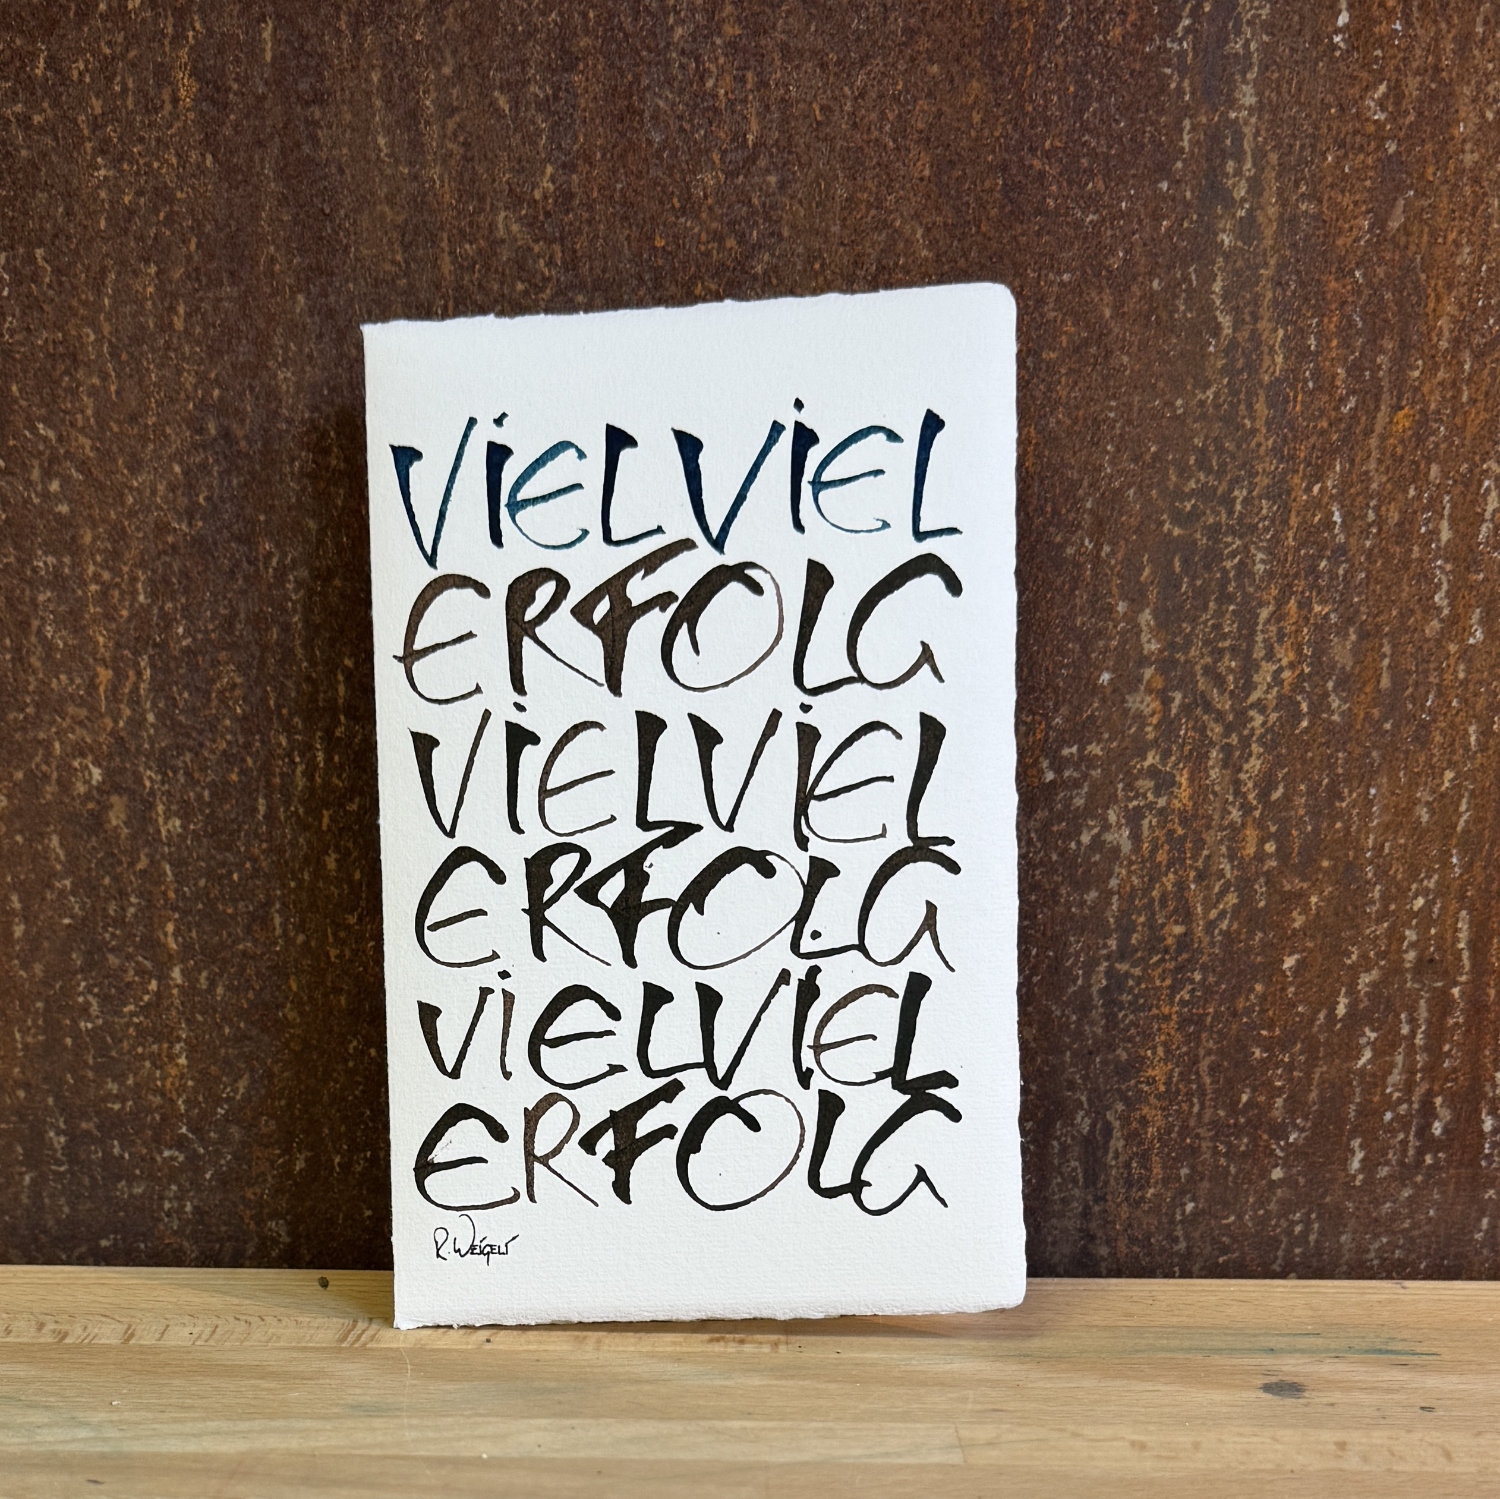 VIEL VIEL
ERFOLG
VIEL VIEL
ERFOLG
VIEL VIEL
ERFOLG
R. WEIGELT